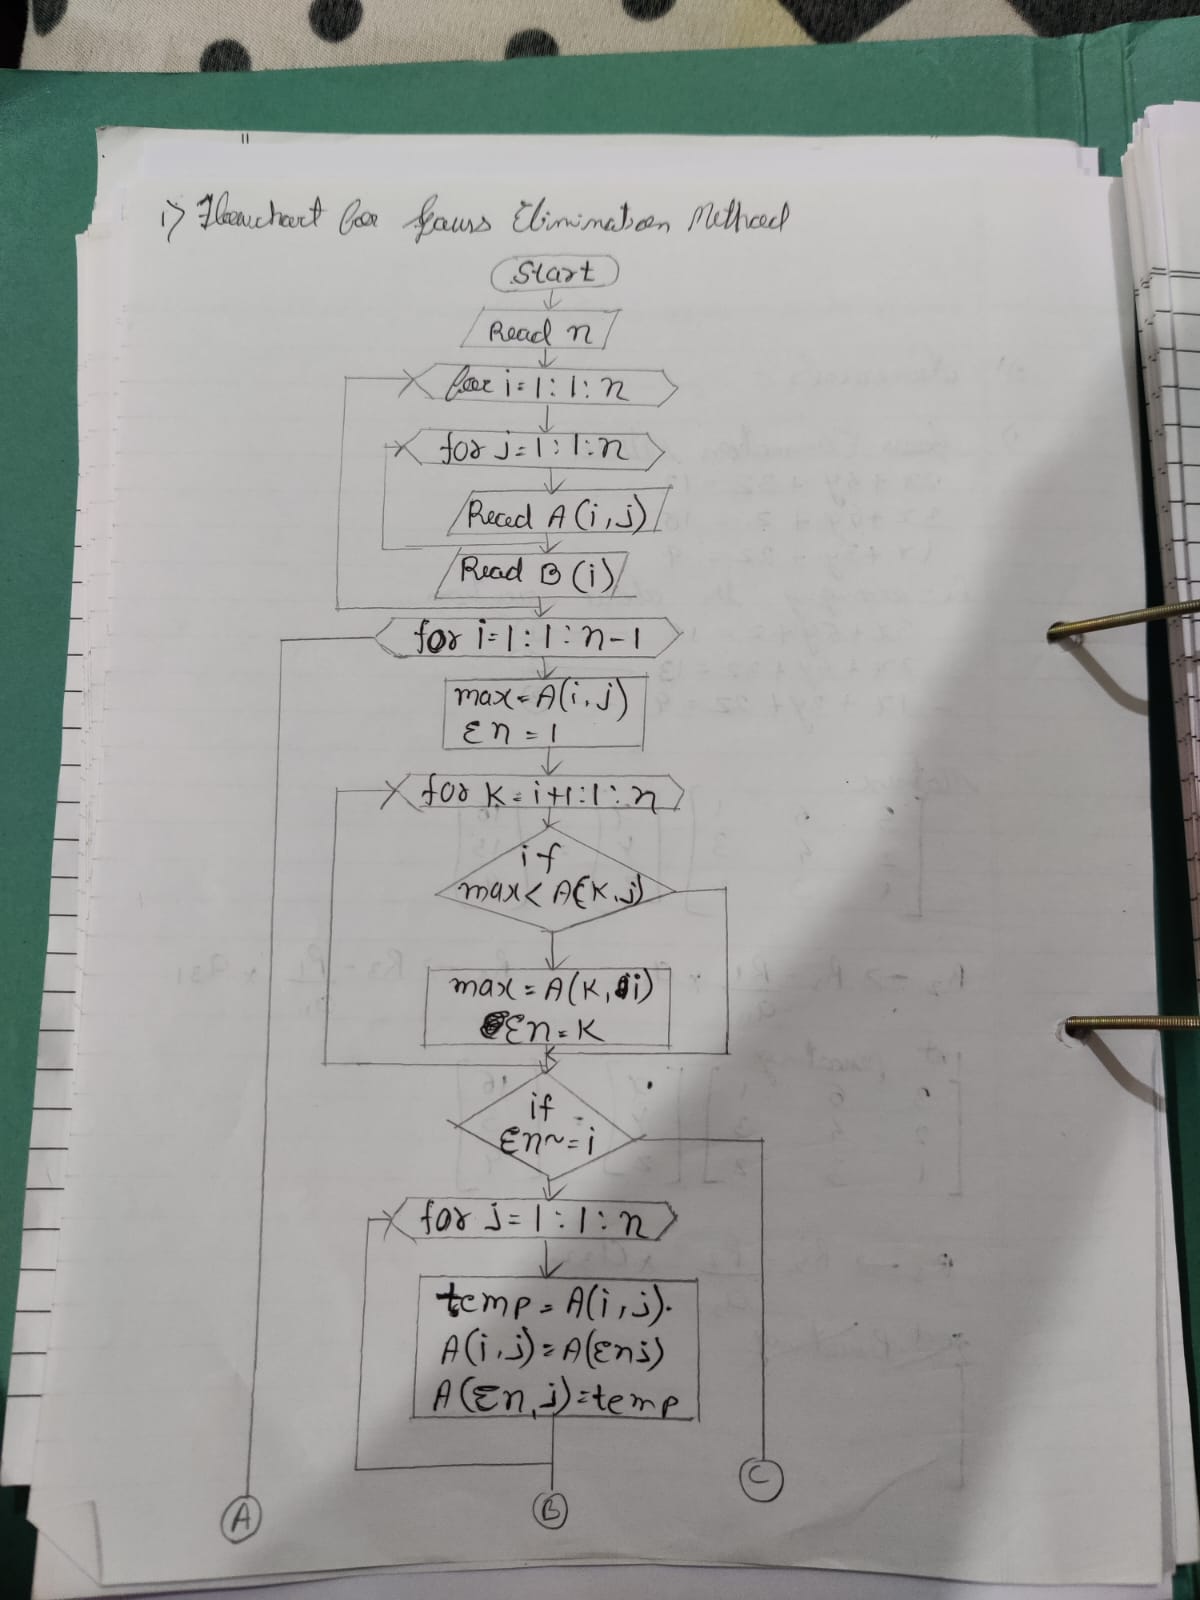 1) Flowchart for Gauss Elimination Method
Start
Read n
for i=1:1:n
for j=1:1:n
Read A(i,j)
Read B(i)
for i=1:1:n-1
max=A(i,j)
En=1
for K=i+1:1:n
if
max< A(K,j)
max=A(K,i)
En=K
if
En~=i
for j=1:1:n
temp=A(i,j).
A(i,j)=A(Enj)
A(En,j)=temp
C
A
B